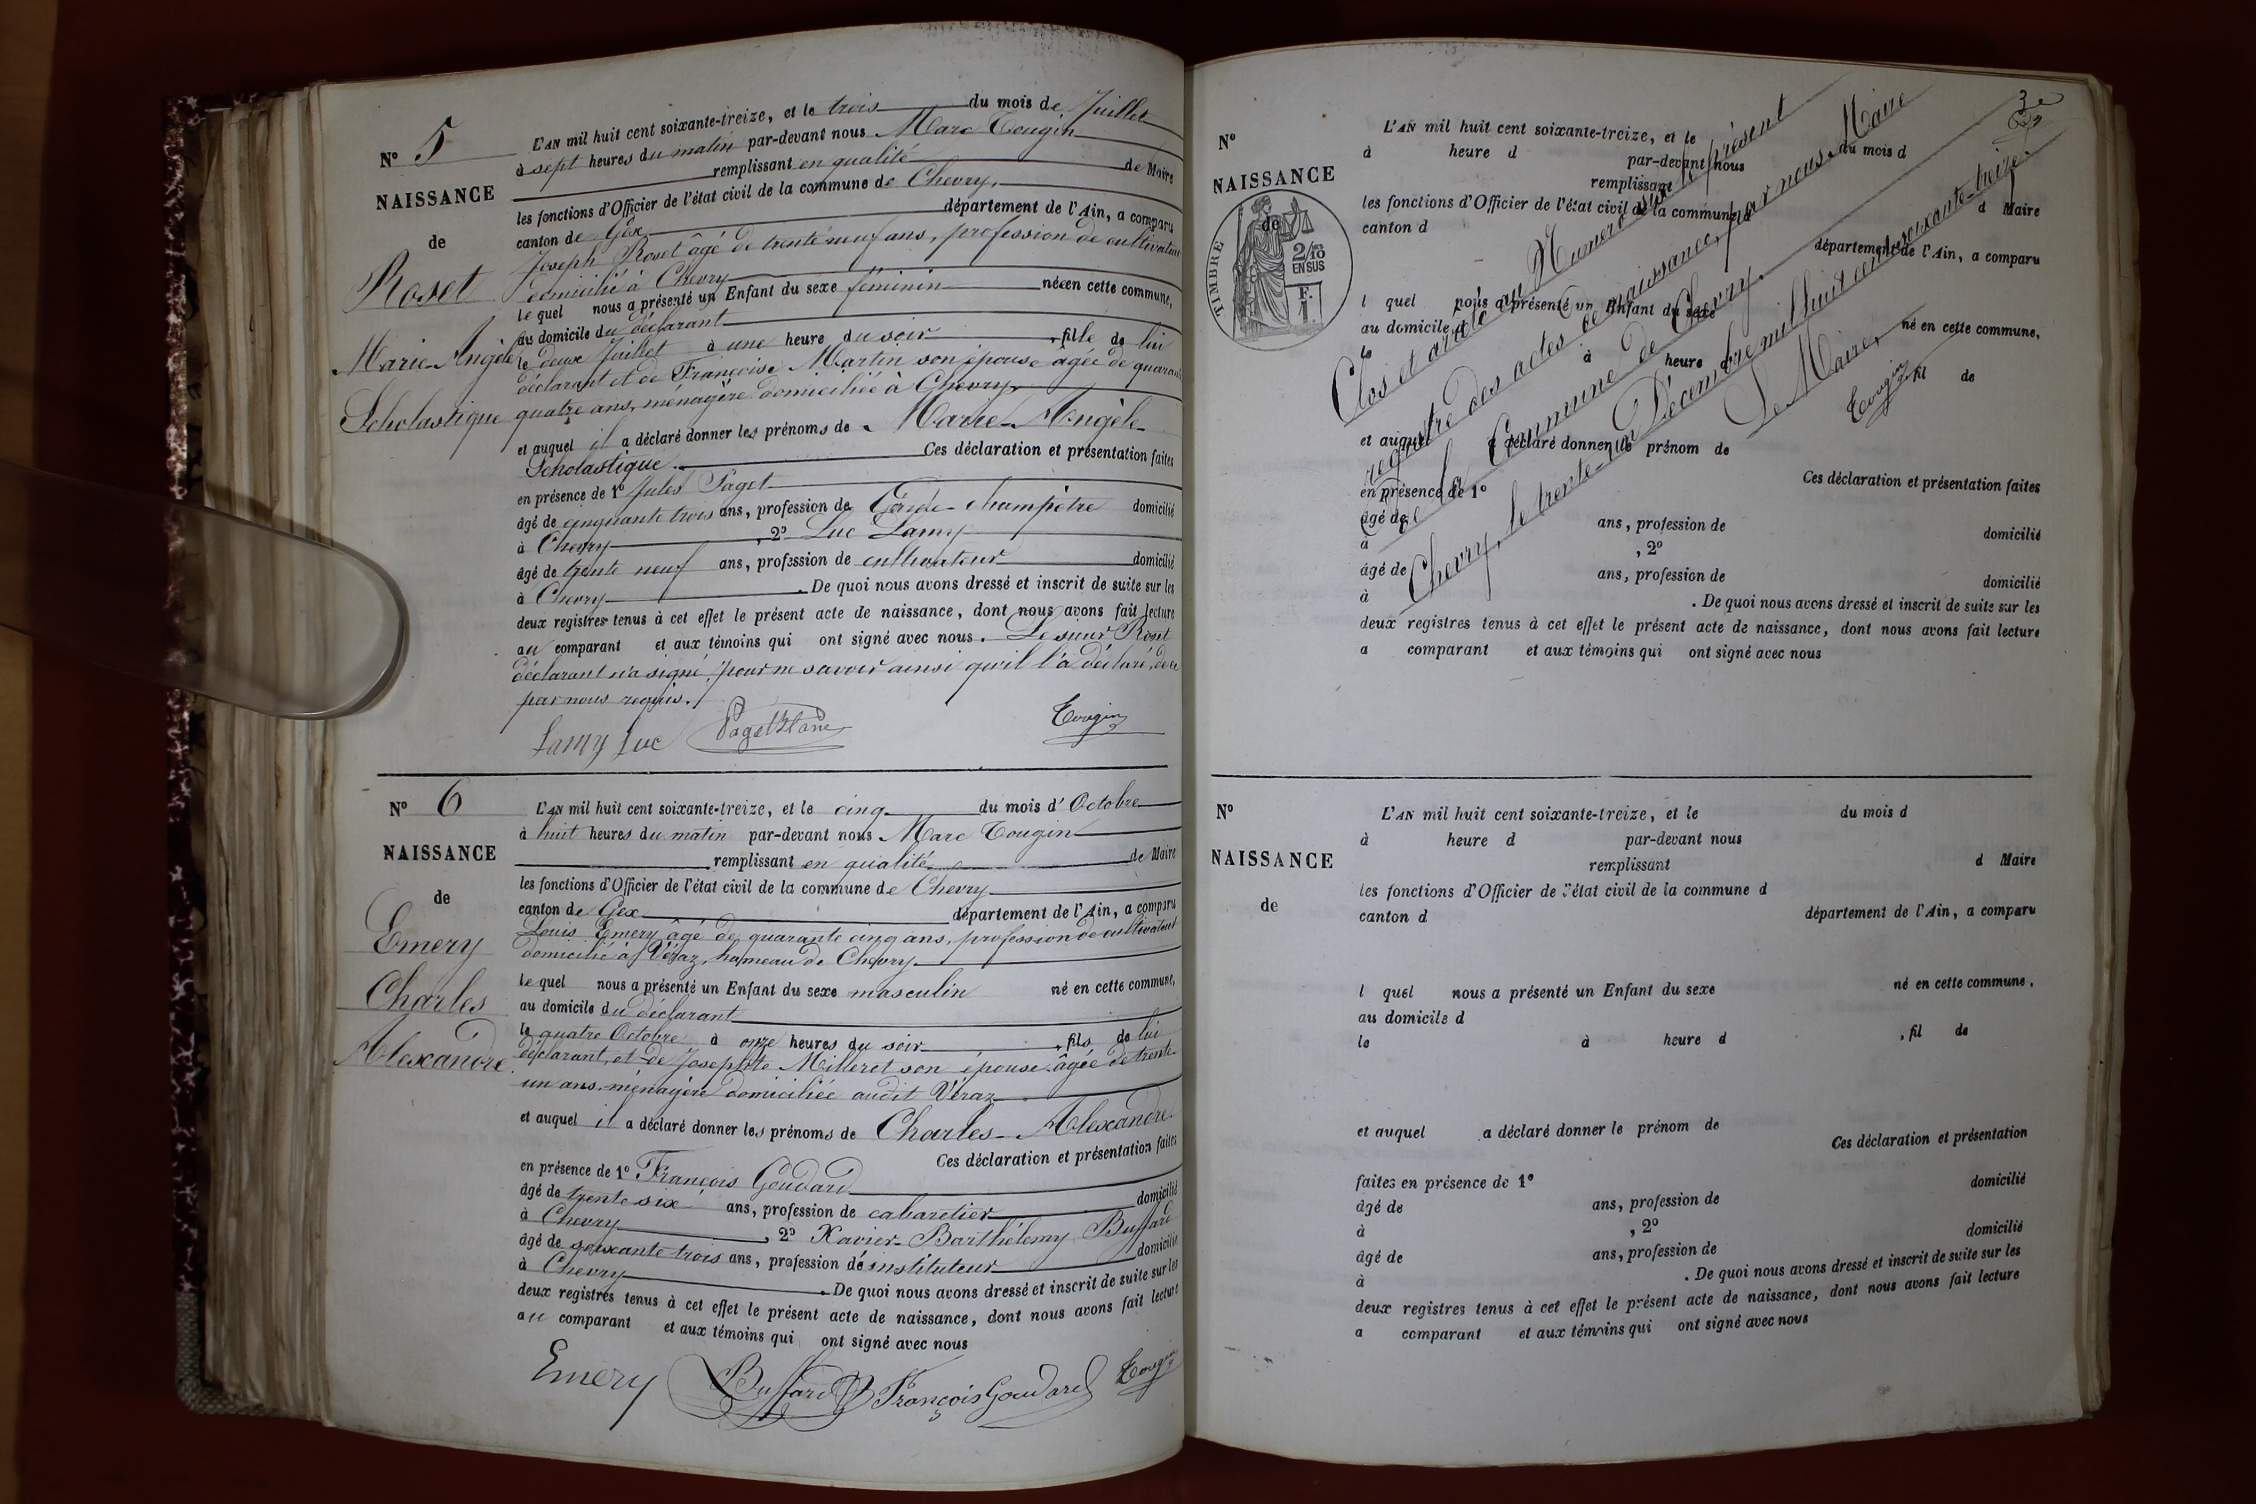 N° 5
NAISSANCE
de
Roset
Marie-Angèle
Scholastique
L'AN mil huit cent soixante-treize, et le trois du mois de Juillet
à sept heures du matin par-devant nous Marc Tougin
remplissant en qualité de Maire
les fonctions d'Officier de l'état civil de la commune de Chevry,
canton de Gex département de l'Ain, a comparu
Joseph Roset âgé de trente neuf ans, profession de cultivateur
domicilié à Chevry
le quel nous a présenté un Enfant du sexe féminin née en cette commune,
au domicile du déclarant
le deux Juillet à une heure du soir, fille de lui
déclarant et de Françoise Martin son épouse agée de quarante
quatre ans, ménagère domiciliée à Chevry,
et auquel il a déclaré donner les prénoms de Marie-Angèle-
Scholastique. Ces déclaration et présentation faites
en présence de 1° Jules Paget
âgé de cinquante trois ans, profession de Garde-champêtre domicilié
à Chevry, 2° Luc Lamy
âgé de trente neuf ans, profession de cultivateur domicilié
à Chevry. De quoi nous avons dressé et inscrit de suite sur les
deux registres tenus à cet effet le présent acte de naissance, dont nous avons fait lecture
au comparant et aux témoins qui ont signé avec nous. Le sieur Roset
déclarant n'a signé pour ne savoir ainsi qu'il l'a déclaré, de ce
par nous requis.
Lamy Luc Paget Tougin
N° 6
NAISSANCE
de
Emery
Charles
Alexandre
L'AN mil huit cent soixante-treize, et le cinq du mois d'Octobre
à huit heures du matin par-devant nous Marc Tougin
remplissant en qualité de Maire
les fonctions d'Officier de l'état civil de la commune de Chevry
canton de Gex département de l'Ain, a comparu
Louis Emery âgé de quarante cinq ans, profession de cultivateur
domicilié à Véraz, hameau de Chevry
le quel nous a présenté un Enfant du sexe masculin né en cette commune,
au domicile du déclarant
le quatre Octobre à onze heures du soir, fils de lui
déclarant, et de Josephte Milleret son épouse âgée de trente
un ans ménagère domiciliée audit Véraz
et auquel il a déclaré donner les prénoms de Charles-Alexandre
Ces déclaration et présentation faites
en présence de 1° François Goudard
âgé de trente six ans, profession de cabaretier domicilié
à Chevry, 2° Xavier-Barthélemy Buffard
âgé de soixante trois ans, profession de instituteur domicilié
à Chevry. De quoi nous avons dressé et inscrit de suite sur les
deux registres tenus à cet effet le présent acte de naissance, dont nous avons fait lecture
au comparant et aux témoins qui ont signé avec nous
Emery Buffard François Goudard Tougin
N°
NAISSANCE
de
TIMBRE
2/10
EN SUS
F.
1.
L'AN mil huit cent soixante-treize, et le du mois d
à heure d par-devant nous
remplissant d Maire
les fonctions d'Officier de l'état civil de la commune d
canton d département de l'Ain, a comparu
l quel nous a présenté un Enfant du sexe né en cette commune,
au domicile d
le à heure d , fil de
et auquel a déclaré donner le prénom de
Ces déclaration et présentation faites
en présence de 1°
âgé de ans, profession de domicilié
à , 2°
âgé de ans, profession de domicilié
à . De quoi nous avons dressé et inscrit de suite sur les
deux registres tenus à cet effet le présent acte de naissance, dont nous avons fait lecture
a comparant et aux témoins qui ont signé avec nous
Clos et arrêté au Numero six le présent
registre des actes de naissance, par nous Maire
de la Commune de Chevry.
Chevry, le trente-un Décembre mil huit cent soixante-treize.
Le Maire,
Tougin
N°
NAISSANCE
de
L'AN mil huit cent soixante-treize, et le du mois d
à heure d par-devant nous
remplissant d Maire
les fonctions d'Officier de l'état civil de la commune d
canton d département de l'Ain, a comparu
l quel nous a présenté un Enfant du sexe né en cette commune,
au domicile d
le à heure d , fil de
et auquel a déclaré donner le prénom de
Ces déclaration et présentation
faites en présence de 1° domicilié
âgé de ans, profession de
à , 2° domicilié
âgé de ans, profession de
à . De quoi nous avons dressé et inscrit de suite sur les
deux registres tenus à cet effet le présent acte de naissance, dont nous avons fait lecture
a comparant et aux témoins qui ont signé avec nous